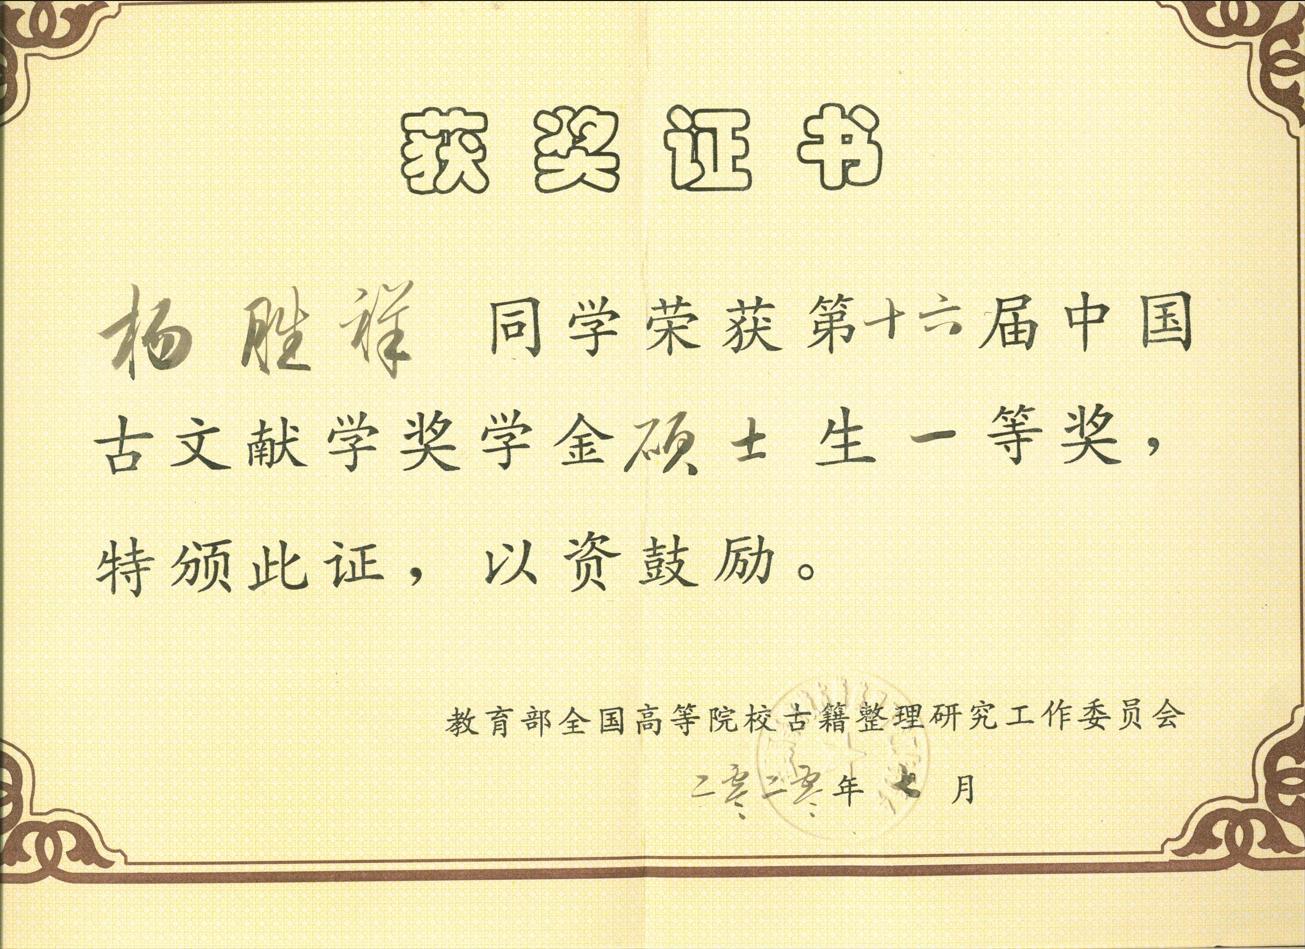 获奖证书
杨胜祥 同学荣获第十六届中国
古文献学奖学金硕士生一等奖，
特颁此证，以资鼓励。
教育部全国高等院校古籍整理研究工作委员会
二零二零年七月